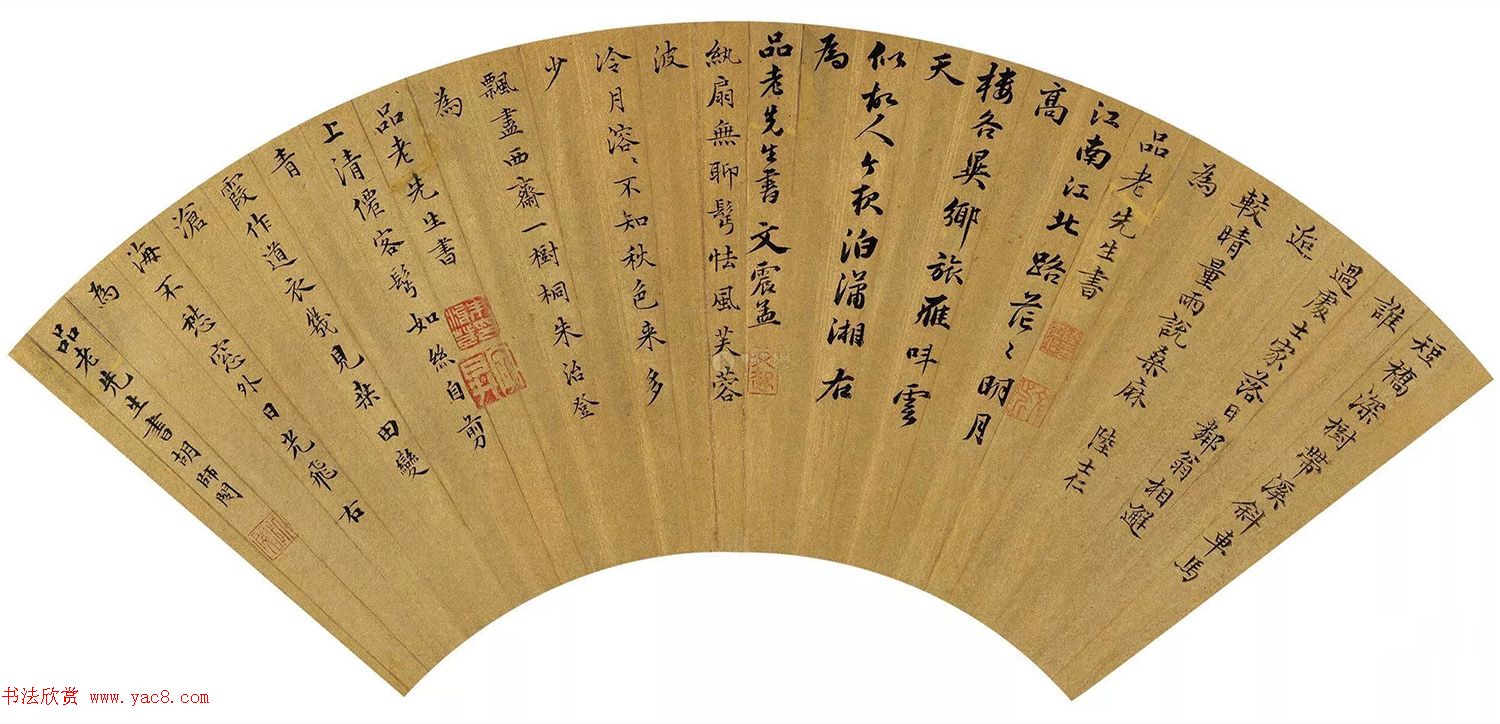 短橋深樹帶溪斜車馬
誰
過處士家落日鄰翁相邂
逅
較晴量雨說桑麻 陸士仁
為
品老先生書
江南江北路茫〻明月
高
樓各異鄉旅雁叫雲
天
似故人今夜泊瀟湘右
為
品老先生書 文震孟
紈扇無聊鬢怯風芙蓉
波
冷月溶〻不知秋色来多
少
飄盡西齋一樹桐朱治登
為
品老先生書
上清僊客鬢如絲自剪
青
霞作道衣幾見桑田變
滄
海不愁窓外日光飛右
為
品老先生書胡師閔
书法欣赏 www.yac8.com